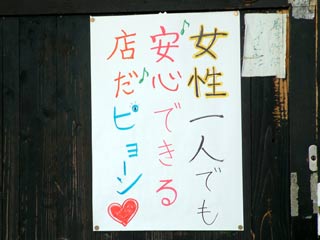 女性一人でも
安心できる
店だピョーン♥